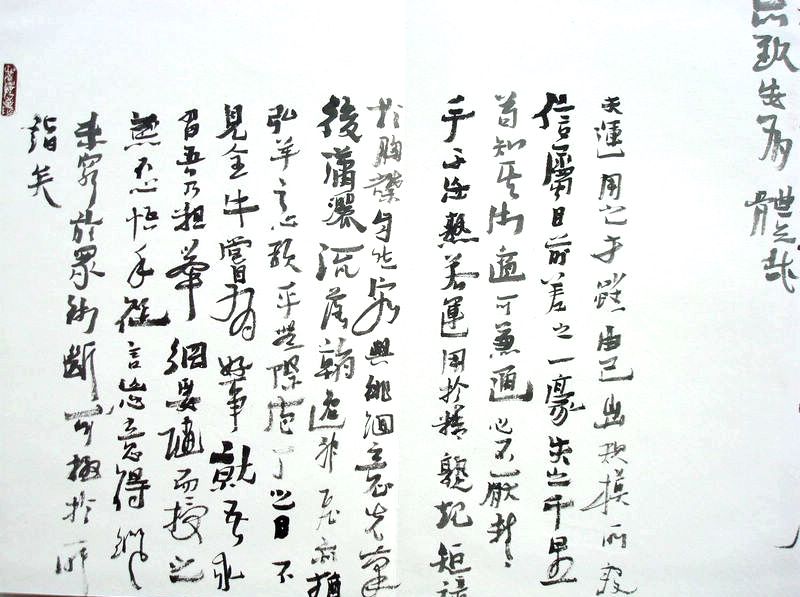 所致安有體哉
夫運用之方雖由己出規模所設
信屬目前差之一豪失之千里
苟知其術適可兼通心不厭精
手不忘熟若運用於精熟規矩諳
於胸襟自然容與徘徊意先筆
後瀟灑流落翰逸神飛亦猶
弘羊之心預乎無際庖丁之目不
見全牛嘗有好事就吾求
習吾乃粗舉綱要隨而授之
無不心悟手從言忘意得縱
未窮於眾術斷可極於所
詣矣